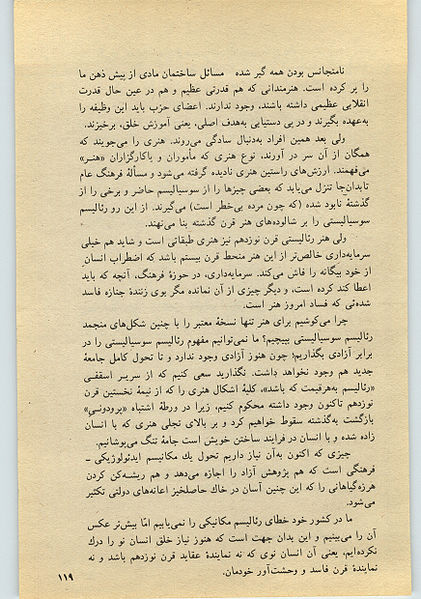 نامتجانس بودن همه گیر شده مسائل ساختمان مادی از پیش ذهن ما
را پر کرده است. هنرمندانی که هم قدرتی عظیم و هم در عین حال قدرت
انقلابی عظیمی داشته باشند، وجود ندارند. اعضای حزب باید این وظیفه را
به‌عهده بگیرند و در پی دستیابی به‌هدف اصلی، یعنی آموزش خلق، برخیزند.
ولی بعد همین افراد به‌دنبال سادگی می‌روند. هنری را می‌جویند که
همگان از آن سر در آورند، نوع هنری که مأموران و یاکارگزاران «هنر»
می‌فهمند. ارزش‌های راستین هنری نادیده گرفته می‌شود و مسألهٔ فرهنگ عام
تابدان‌جا تنزل می‌یابد که بعضی چیزها را از سوسیالیسم حاضر و برخی را از
گذشتهٔ نابود شده (که چون مرده بی‌خطر است) می‌گیرند. از این رو رئالیسم
سوسیالیستی را بر شالوده‌های هنر قرن گذشته بنا می‌نهند.
ولی هنر رئالیستی قرن نوزدهم نیز هنری طبقاتی است و شاید هم خیلی
سرمایه‌داری خالص‌تر از این هنر منحط قرن بیستم باشد که اضطراب انسان
از خود بیگانه را فاش می‌کند. سرمایه‌داری، در حوزهٔ فرهنگ، آنچه که باید
اعطا کند کرده است، و دیگر چیزی از آن نمانده مگر بوی زنندهٔ جنازه فاسد
شده‌ئی که فساد امروز هنر است.
چرا می‌کوشیم برای هنر تنها نسخهٔ معتبر را با چنین شکل‌های منجمد
رئالیسم سوسیالیستی بپیچیم؟ ما نمی‌توانیم مفهوم رئالیسم سوسیالیستی را در
برابر آزادی بگذاریم؛ چون هنوز آزادی وجود ندارد و تا تحول کامل جامعهٔ
جدید هم وجود نخواهد داشت. نگذارید سعی کنیم که از سریر اسقفی
«رئالیسم به‌هرقیمت که باشد»، کلیهٔ اشکال هنری را که از نیمهٔ نخستین قرن
نوزدهم تاکنون وجود داشته محکوم کنیم، زیرا در ورطهٔ اشتباه «پرودونی»
بازگشت به‌گذشته سقوط خواهیم کرد و بر بالای تجلی هنری که با انسان
زاده شده و با انسان در فرایند ساختن خویش است جامهٔ تنگ می‌پوشانیم.
چیزی که اکنون به‌آن نیاز داریم تحول یك مکانیسم ایدئولوژیکی ـ
فرهنگی است که هم پژوهش آزاد را اجازه می‌دهد و هم ریشه‌کن کردن
هرزه‌گیاهانی را که این چنین آسان در خاك حاصلخیز اعانه‌های دولتی تکثیر
می‌شود.
ما در کشور خود خطای رئالیسم مکانیکی را نمی‌یابیم امّا بیش‌تر عکس
آن را می‌بینیم و این بدان جهت است که هنوز نیاز خلق انسان نو را درك
نکرده‌ایم، یعنی آن انسان نوی که نه نمایندهٔ عقاید قرن نوزدهم باشد و نه
نمایندهٔ قرن فاسد و وحشت‌آور خودمان.
۱۱۹